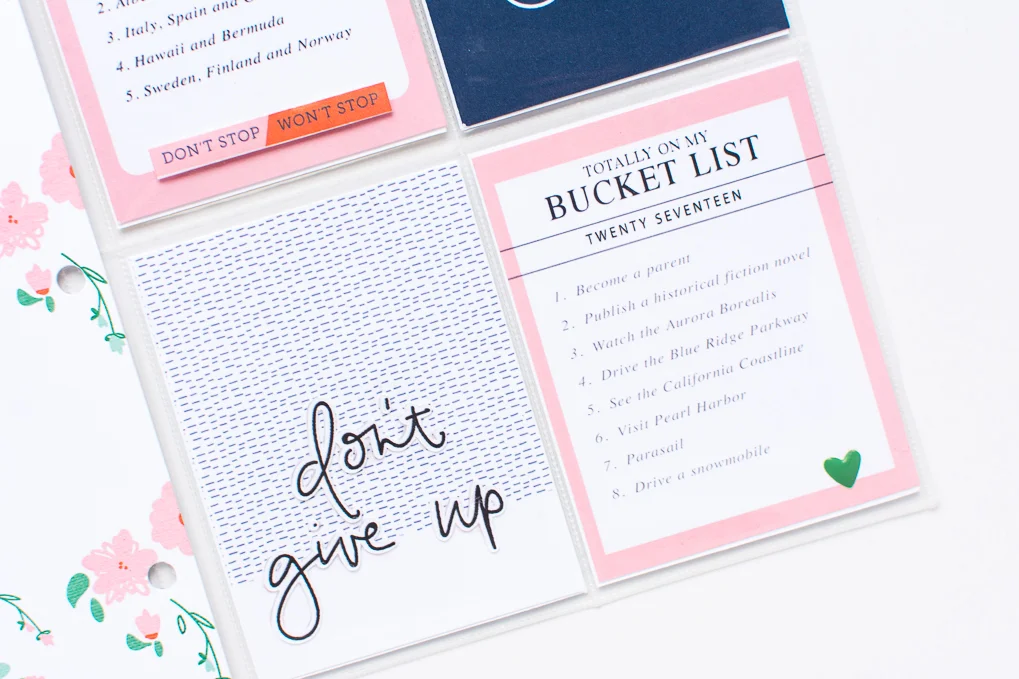 3. Italy, Spain and
4. Hawaii and Bermuda
5. Sweden, Finland and Norway
DON'T STOP WON'T STOP
TOTALLY ON MY
BUCKET LIST
TWENTY SEVENTEEN
1. Become a parent
2. Publish a historical fiction novel
3. Watch the Aurora Borealis
4. Drive the Blue Ridge Parkway
5. See the California Coastline
6. Visit Pearl Harbor
7. Parasail
8. Drive a snowmobile
don't
give up